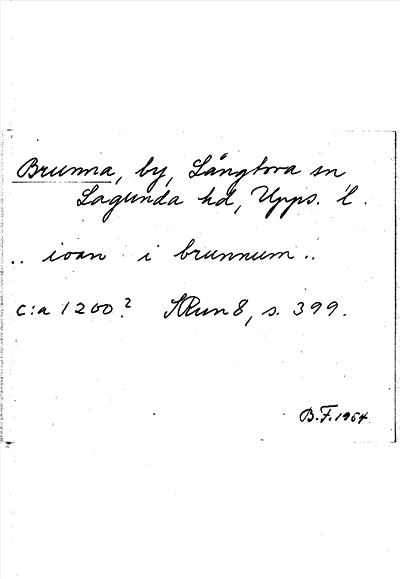 Brunna, by, Långtora sn
Lagunda hd, Upps. l.
.. ioan i brunnum ..
c:a 1200? SRun 8, s. 399.
B.F. 1954